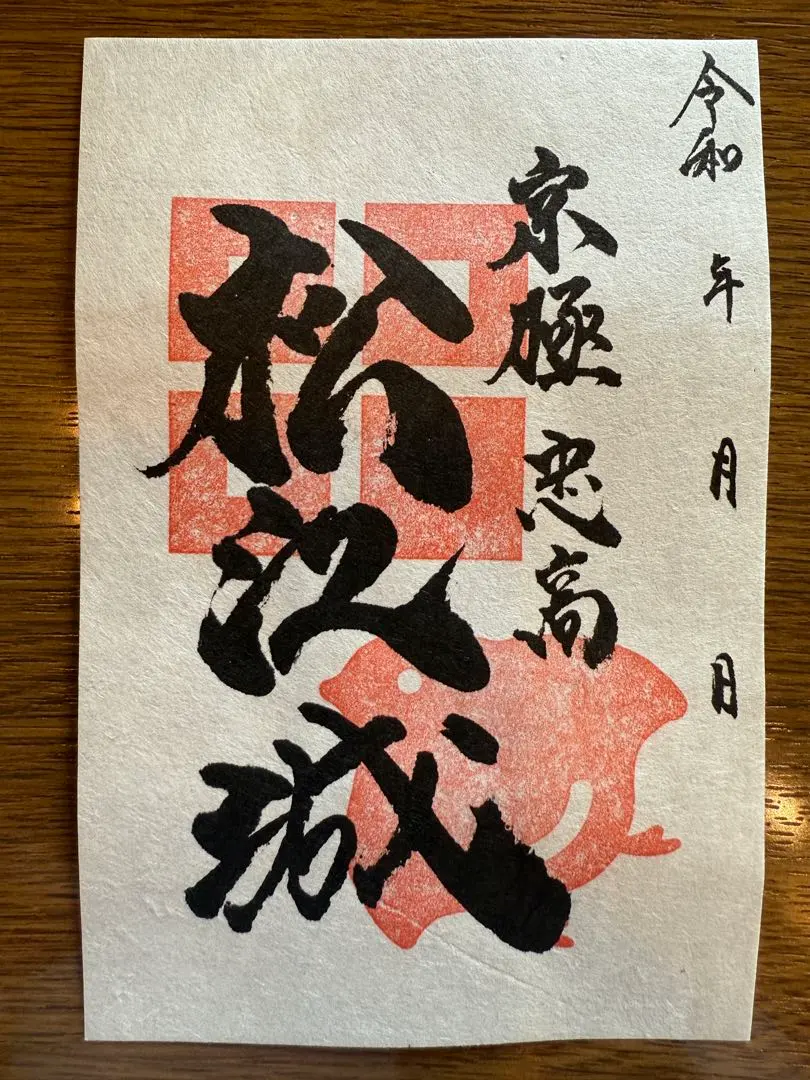 令和 年 月 日
京極 忠高
松江城